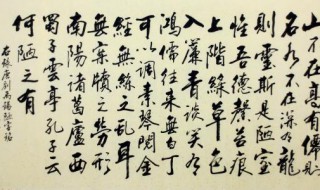 山不在高有僊則
名水不在深有龍
則靈斯是陋室
惟吾德馨苔痕
上階綠草色
入簾青談笑有
鴻儒往來無白丁
可以調素琴閱金
經無絲之亂耳
無案牘之勞形
南陽諸葛廬西
蜀子雲亭孔子云
何陋之有
右錄唐劉禹錫陋室銘